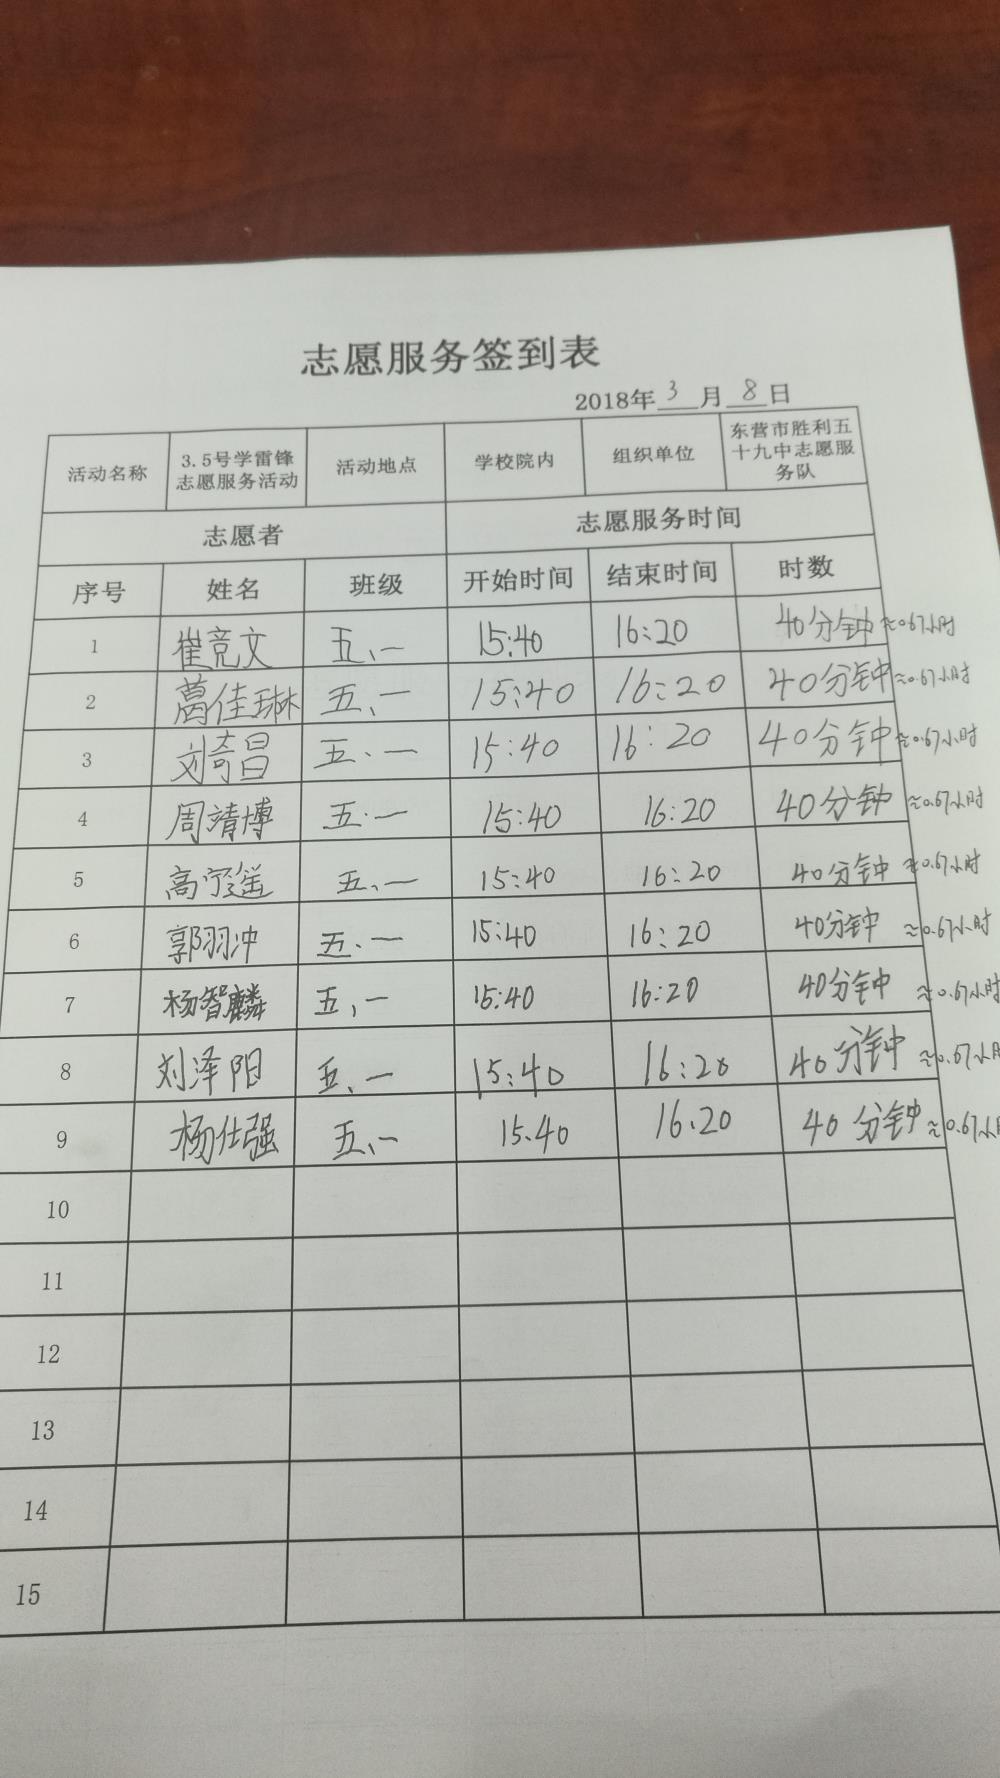 志愿服务签到表
2018年 3 月 8 日
活动名称 3.5号学雷锋志愿服务活动 活动地点 学校院内 组织单位 东营市胜利五十九中志愿服务队
志愿者 志愿服务时间
序号 姓名 班级 开始时间 结束时间 时数
1 崔竞文 五、一 15:40 16:20 40分钟≈0.67小时
2 葛佳琳 五、一 15:40 16:20 40分钟≈0.67小时
3 刘奇昌 五·一 15:40 16:20 40分钟≈0.67小时
4 周靖博 五·一 15:40 16:20 40分钟≈0.67小时
5 高宁遥 五、一 15:40 16:20 40分钟≈0.67小时
6 郭羽冲 五·一 15:40 16:20 40分钟≈0.67小时
7 杨智麟 五,一 15:40 16:20 40分钟≈0.67小时
8 刘泽阳 五、一 15:40 16:20 40分钟≈0.67小时
9 杨仕强 五、一 15.40 16.20 40分钟≈0.67小时
10
11
12
13
14
15